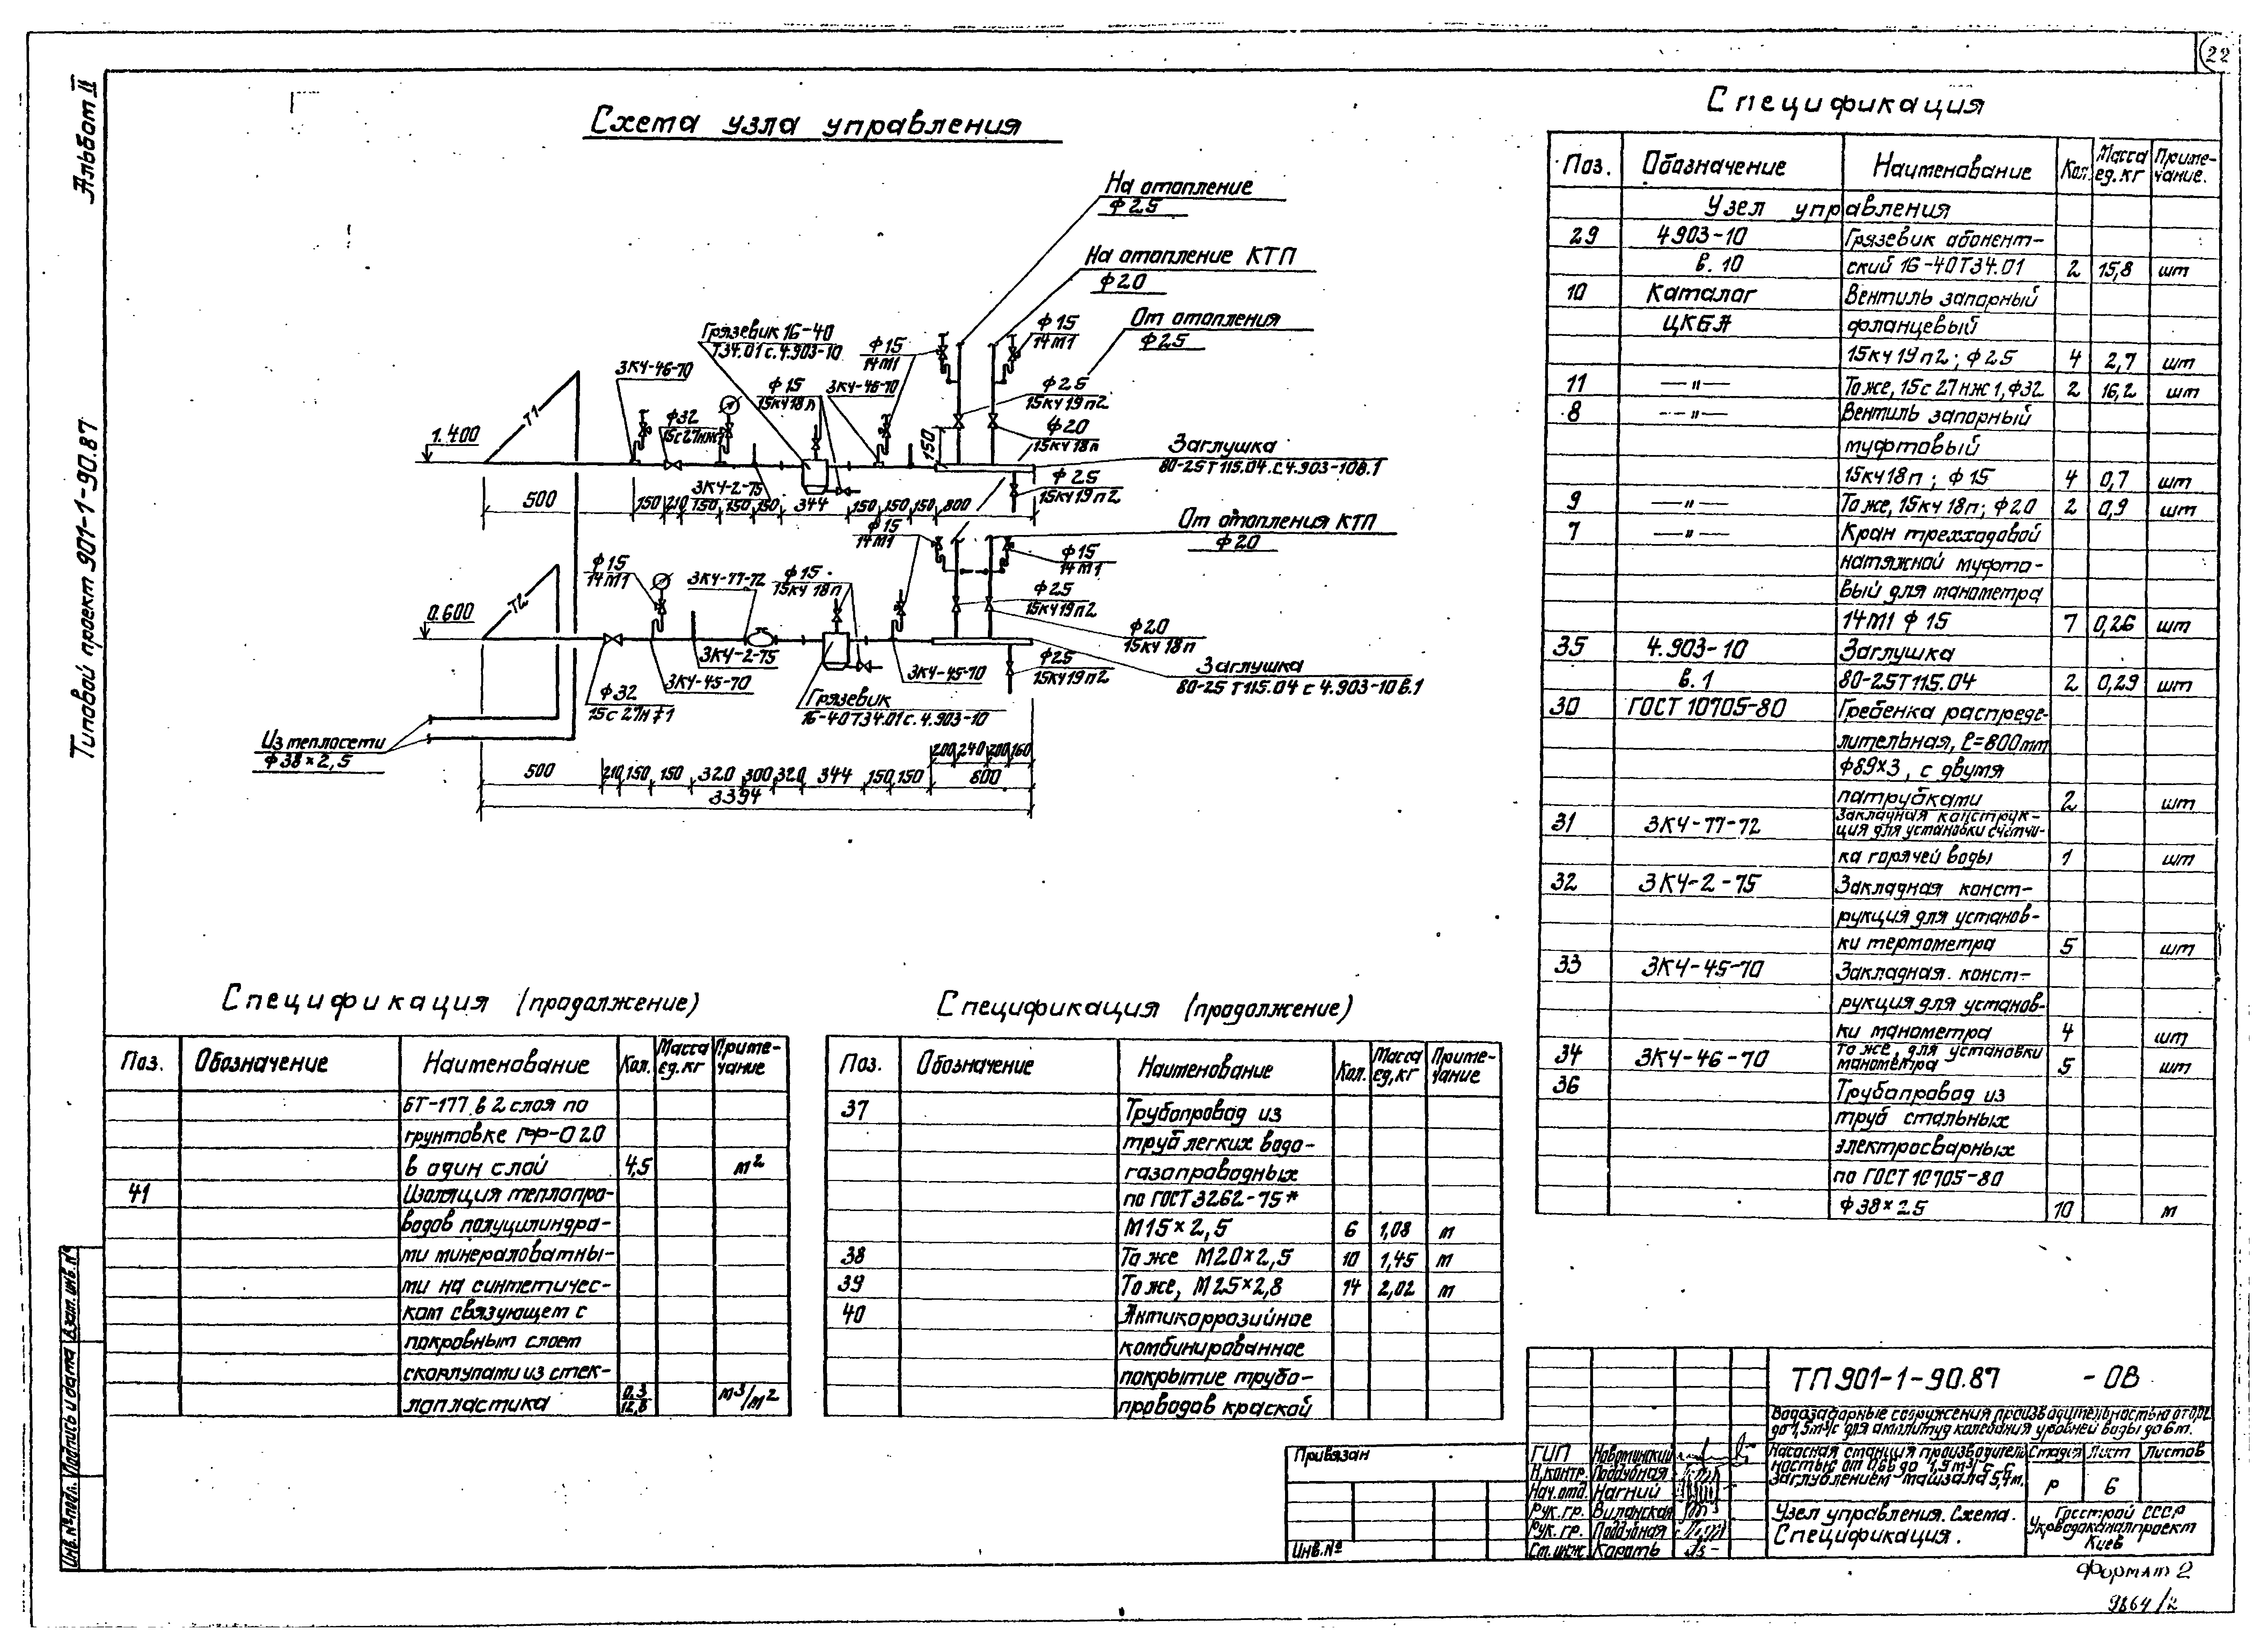 22
Альбом II
Типовой проект 901-1-90.87
Схема узла управления
На отопление
ф25
На отопление КТП
ф20
От отопления
ф25
Грязевик 16-40
Т34.01 с.4.903-10
ф15
14М1
ф15
14М1
ЗКЧ-46-70
ф15
15кч18п
ЗКЧ-46-70
ф25
15кч19п2
ф32
15с27нж1
ф20
15кч18п
150
1.400
Т1
Заглушка
80-25Т115.04.с4.903-10в.1
ЗКЧ-2-75
ф25
15кч19п2
500
150 210 150 150 150 344 150 150 150 800
ф15
14М1
От отопления КТП
ф20
ф15
14М1
ф15
14М1
ЗКЧ-77-72
ф15
15кч18п
ф25
15кч19п2
0.600
Т2
ф20
15кч18п
ЗКЧ-2-75
ЗКЧ-45-70
ЗКЧ-45-70
ф25
15кч19п2
Заглушка
80-25 Т115.04 с 4.903-10в.1
ф32
Грязевик
16-40Т34.01с.4.903-10
Из теплосети
ф38×2,5
200 240 200 160
500 210 150 150 320 300 320 344 150 150 800
3394
Спецификация
Поз. Обозначение Наименование Кол. Масса ед.кг Примечание.
Узел управления
29 4.903-10 Грязевик абонент-
в.10 ский 16-40Т34.01 2 15,8 шт
10 Каталог Вентиль запорный
ЦКБА фланцевый
15кч19п2; ф25 4 2,7 шт
11 —"— То же, 15с27нж1, ф32 2 16,2 шт
8 —"— Вентиль запорный
муфтовый
15кч18п; ф15 4 0,7 шт
9 —"— То же, 15кч18п; ф20 2 0,9 шт
7 —"— Кран трехходовой
натяжной муфто-
вый для манометра
14М1 ф15 7 0,26 шт
35 4.903-10 Заглушка
в.1 80-25Т115.04 2 0,29 шт
30 ГОСТ 10705-80 Гребенка распреде-
лительная, ℓ=800мм
ф89×3, с двумя
патрубками 2 шт
31 ЗКЧ-77-72 Закладная конструк-
ция для установки счетчи-
ка горячей воды 1 шт
32 ЗКЧ-2-75 Закладная конст-
рукция для установ-
ки термометра 5 шт
33 ЗКЧ-45-70 Закладная конст-
рукция для установ-
ки манометра 4 шт
34 ЗКЧ-46-70 То же, для установки
манометра 5 шт
36 Трубопровод из
труб стальных
электросварных
по ГОСТ 10705-80
ф38×2.5 10 м
Спецификация (продолжение)
Поз. Обозначение Наименование Кол. Масса ед.кг Примечание
БТ-177 в 2 слоя по
грунтовке ГФ-020
в один слой 4,5 м2
41 Изоляция теплопро-
водов полуцилиндра-
ми минераловатны-
ми на синтетичес-
ком связующем с
покровным слоем
скорлупами из стек-
лопластика 0.3/12,8 м3/м2
Спецификация (продолжение)
Поз. Обозначение Наименование Кол. Масса ед,кг Примечание
37 Трубопровод из
труб легких водо-
газопроводных
по ГОСТ 3262-75*
М15×2,5 6 1,08 м
38 То же М20×2,5 10 1,45 м
39 То же, М25×2,8 14 2,02 м
40 Антикоррозийное
комбинированное
покрытие трубо-
проводов краской
Привязан
Инв.№
ГИП
Н.контр. Поддубная
Нач.отд. Нагний
Рук.гр. Виланская
Рук.гр. Поддубная
Ст.инж. Кароть
ТП 901-1-90.87 -ОВ
Водозаборные сооружения производительностью от 0,02
до 1,5м3/с для амплитуд колебания уровней воды до 6м.
Насосная станция производитель-
ностью от 0,66 до 1,5м3/с с
заглублением машзала 5,4м.
Стадия Лист Листов
Р 6
Узел управления. Схема.
Спецификация.
Госстрой СССР
Укрводоканалпроект
Киев
Инв.№подл. Подпись и дата Взам.инв.№
Формат 2
9864/2